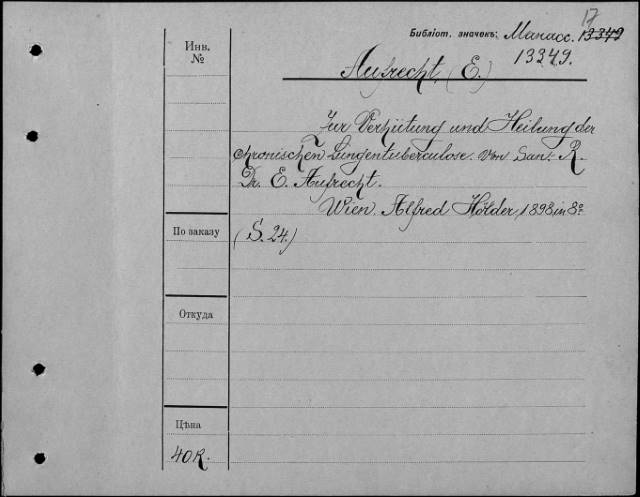 17
Библіот. значекъ: Манасс. 13349
13349.
Инв.
№
Aufrecht, (E.)
Zur Verhütung und Heilung der
chronischen Lungentuberculose. Von San.-R.
Dr. E. Aufrecht.
Wien. Alfred Hölder, 1898 in 8º
По заказу
(S. 24.)
Откуда
Цѣна
40к.